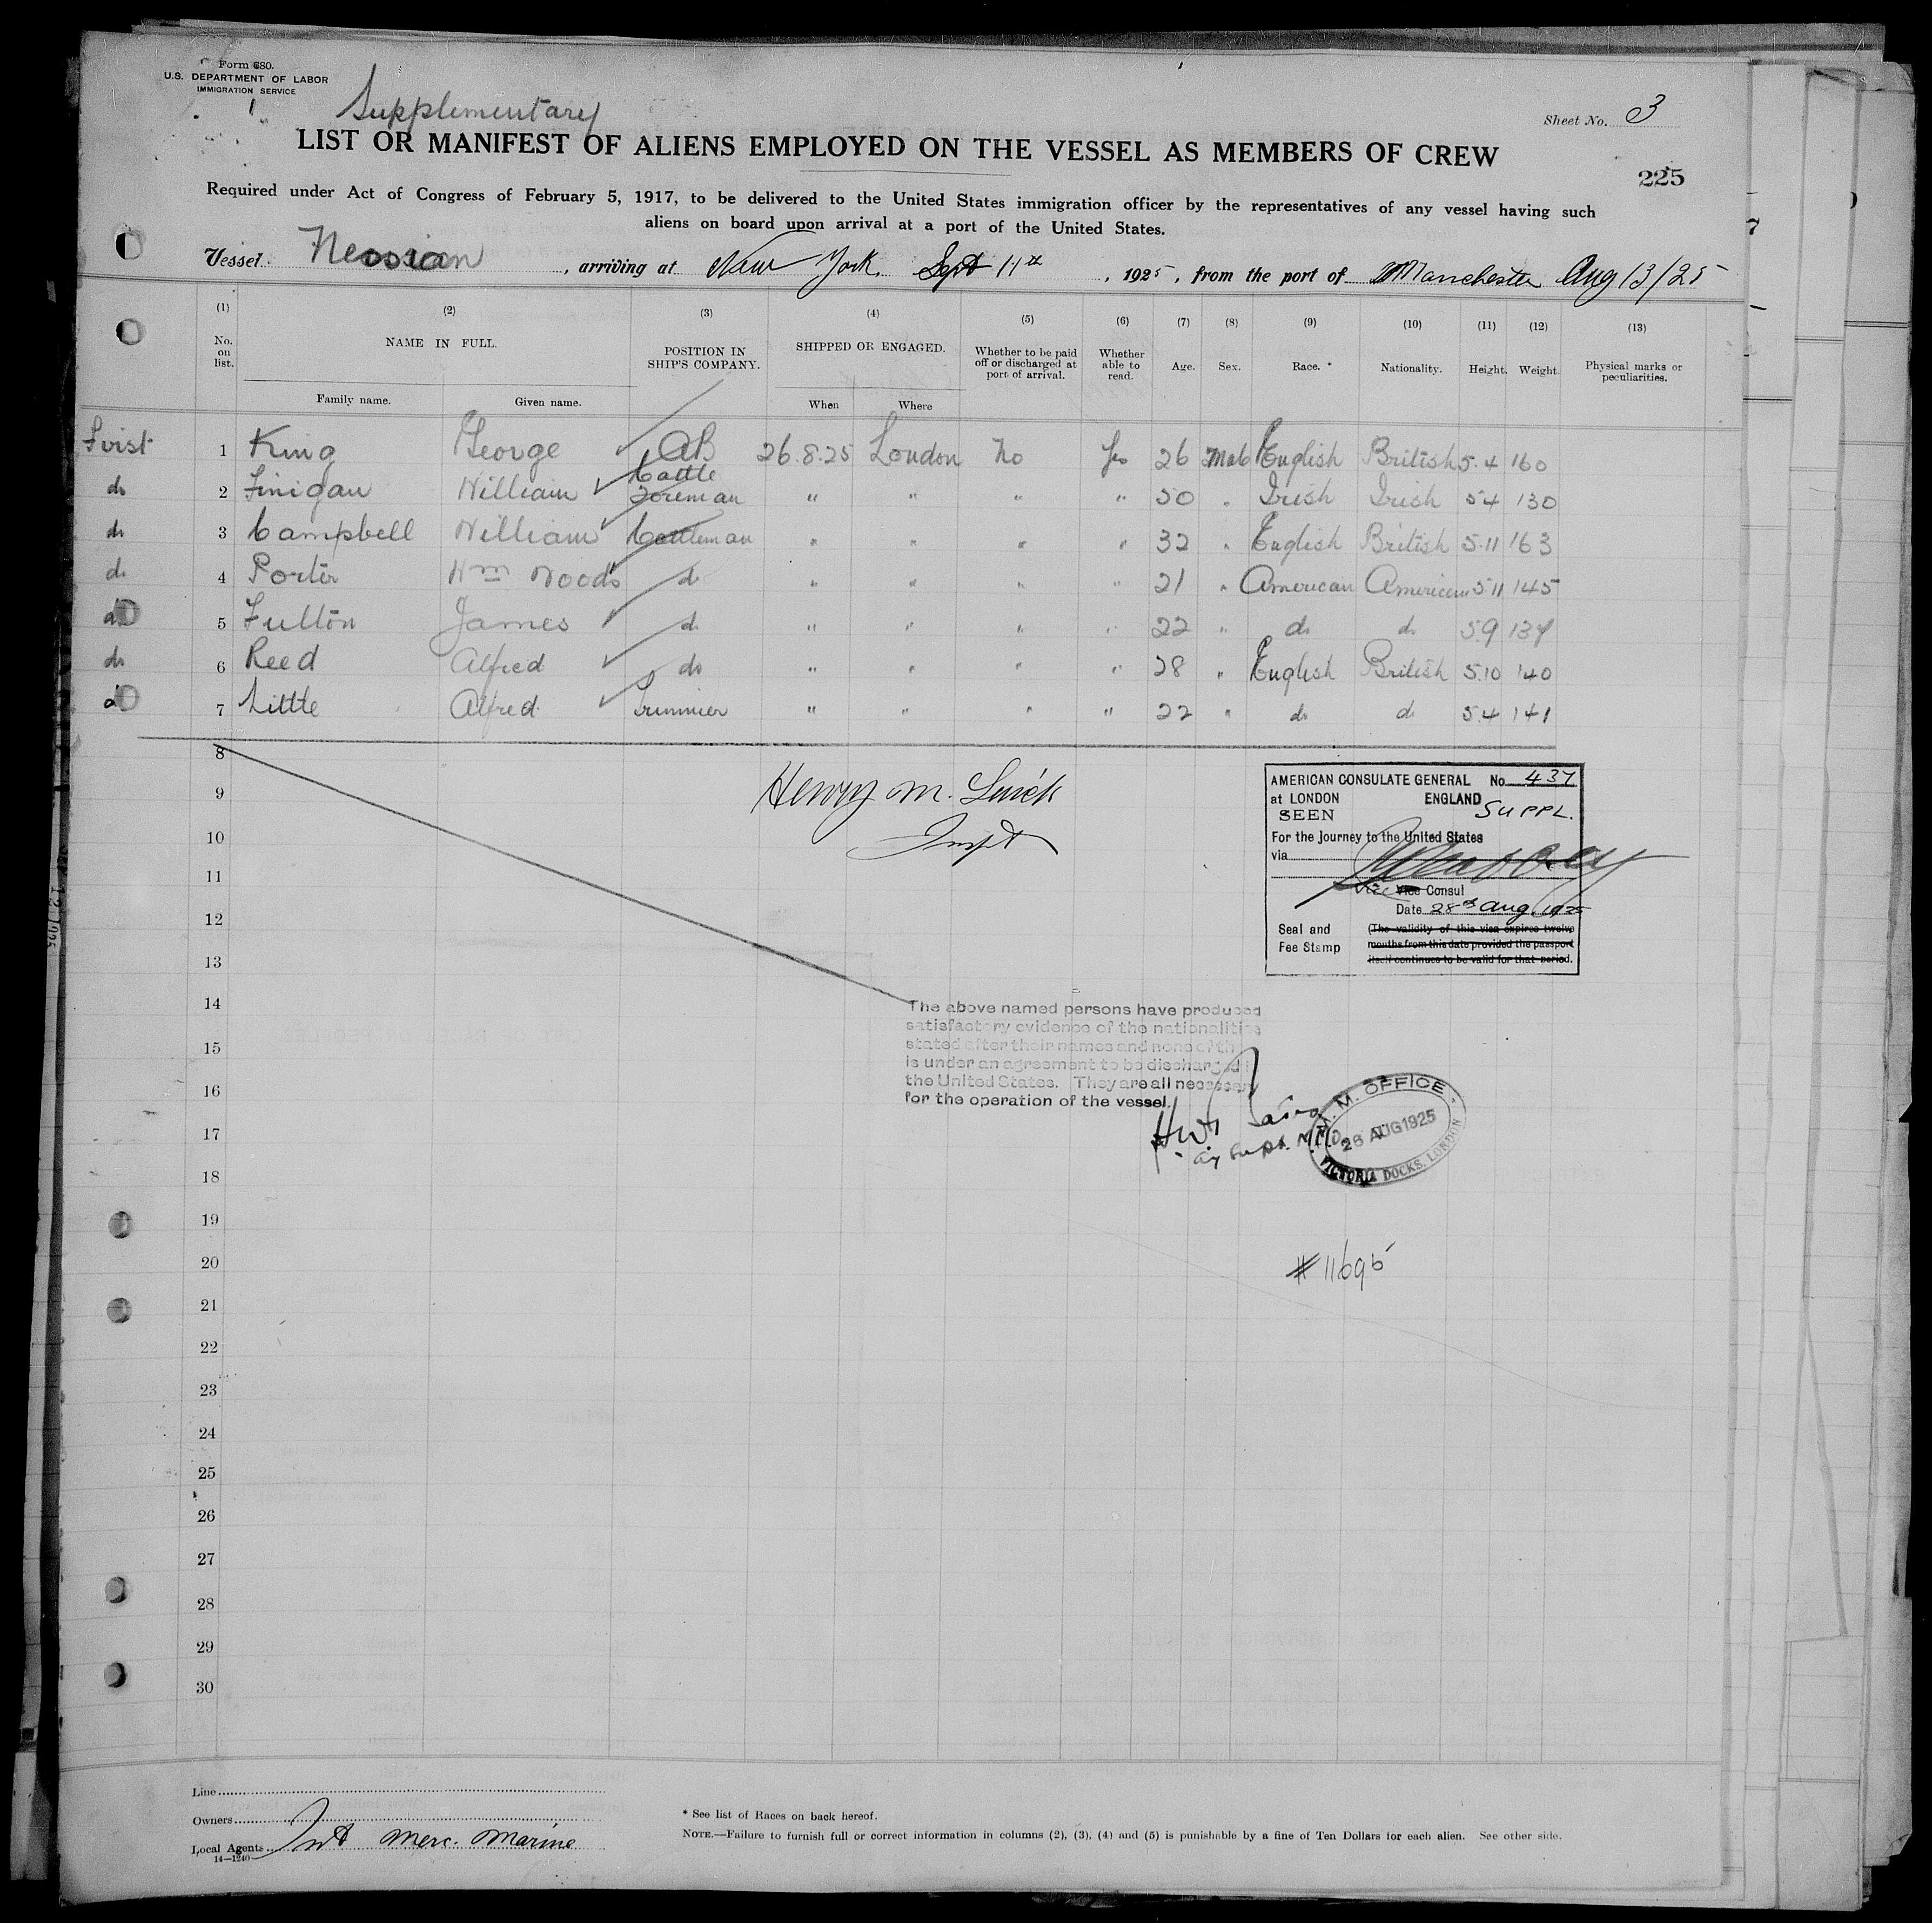 Form 680.
U.S. DEPARTMENT OF LABOR
IMMIGRATION SERVICE
Supplementary
Sheet No. 3
LIST OR MANIFEST OF ALIENS EMPLOYED ON THE VESSEL AS MEMBERS OF CREW
225
Required under Act of Congress of February 5, 1917, to be delivered to the United States immigration officer by the representatives of any vessel having such
aliens on board upon arrival at a port of the United States.
Vessel Nessian, arriving at New York. Sept 11th, 1925, from the port of Manchester Aug 13/25
(1) (2) (3) (4) (5) (6) (7) (8) (9) (10) (11) (12) (13)
No. on list. NAME IN FULL. POSITION IN SHIP'S COMPANY. SHIPPED OR ENGAGED. Whether to be paid off or discharged at port of arrival. Whether able to read. Age. Sex. Race. * Nationality. Height. Weight. Physical marks or peculiarities.
Family name. Given name. When Where
First 1 King George AB 26.8.25 London No Yes 26 Male English British 5.4 160
do 2 Finigan William Cattle Foreman " " " " 50 " Irish Irish 5.4 130
do 3 Campbell William Cattleman " " " " 32 " English British 5.11 163
do 4 Porter Wm Woods do " " " " 21 " American American 5.11 145
do 5 Fulton James do " " " " 22 " do do 5.9 137
do 6 Reed Alfred do " " " " 28 " English British 5.10 140
do 7 Little Alfred Trimmer " " " " 22 " do do 5.4 141
8
9
10
11
12
13
14
15
16
17
18
19
20
21
22
23
24
25
26
27
28
29
30
Henry M.
Inspt
AMERICAN CONSULATE GENERAL No. 437
at LONDON ENGLAND SUPPL.
SEEN
For the journey to the United States
via
Vice Vice Consul
Date 28th Aug. 1925
Seal and Fee Stamp
(The validity of this visa expires twelve
months from this date provided the passport
itself continues to be valid for that period.
The above named persons have produced
satisfactory evidence of the nationalities
stated after their names and none of th
is under an agreement to be discharged i
the United States. They are all necessary
for the operation of the vessel.
M. M. OFFICE
26 AUG 1925
VICTORIA DOCKS, LONDON
#11695
Line
Owners
Local Agents Int Merc. Marine
14—1240
* See list of Races on back hereof.
NOTE.—Failure to furnish full or correct information in columns (2), (3), (4) and (5) is punishable by a fine of Ten Dollars for each alien. See other side.